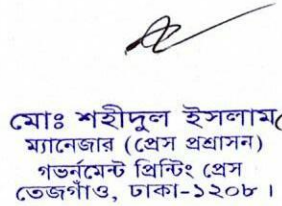 মোঃ শহীদুল ইসলাম
ম্যানেজার (প্রেস প্রশাসন)
গভর্নমেন্ট প্রিন্টিং প্রেস
তেজগাঁও, ঢাকা-১২০৮।